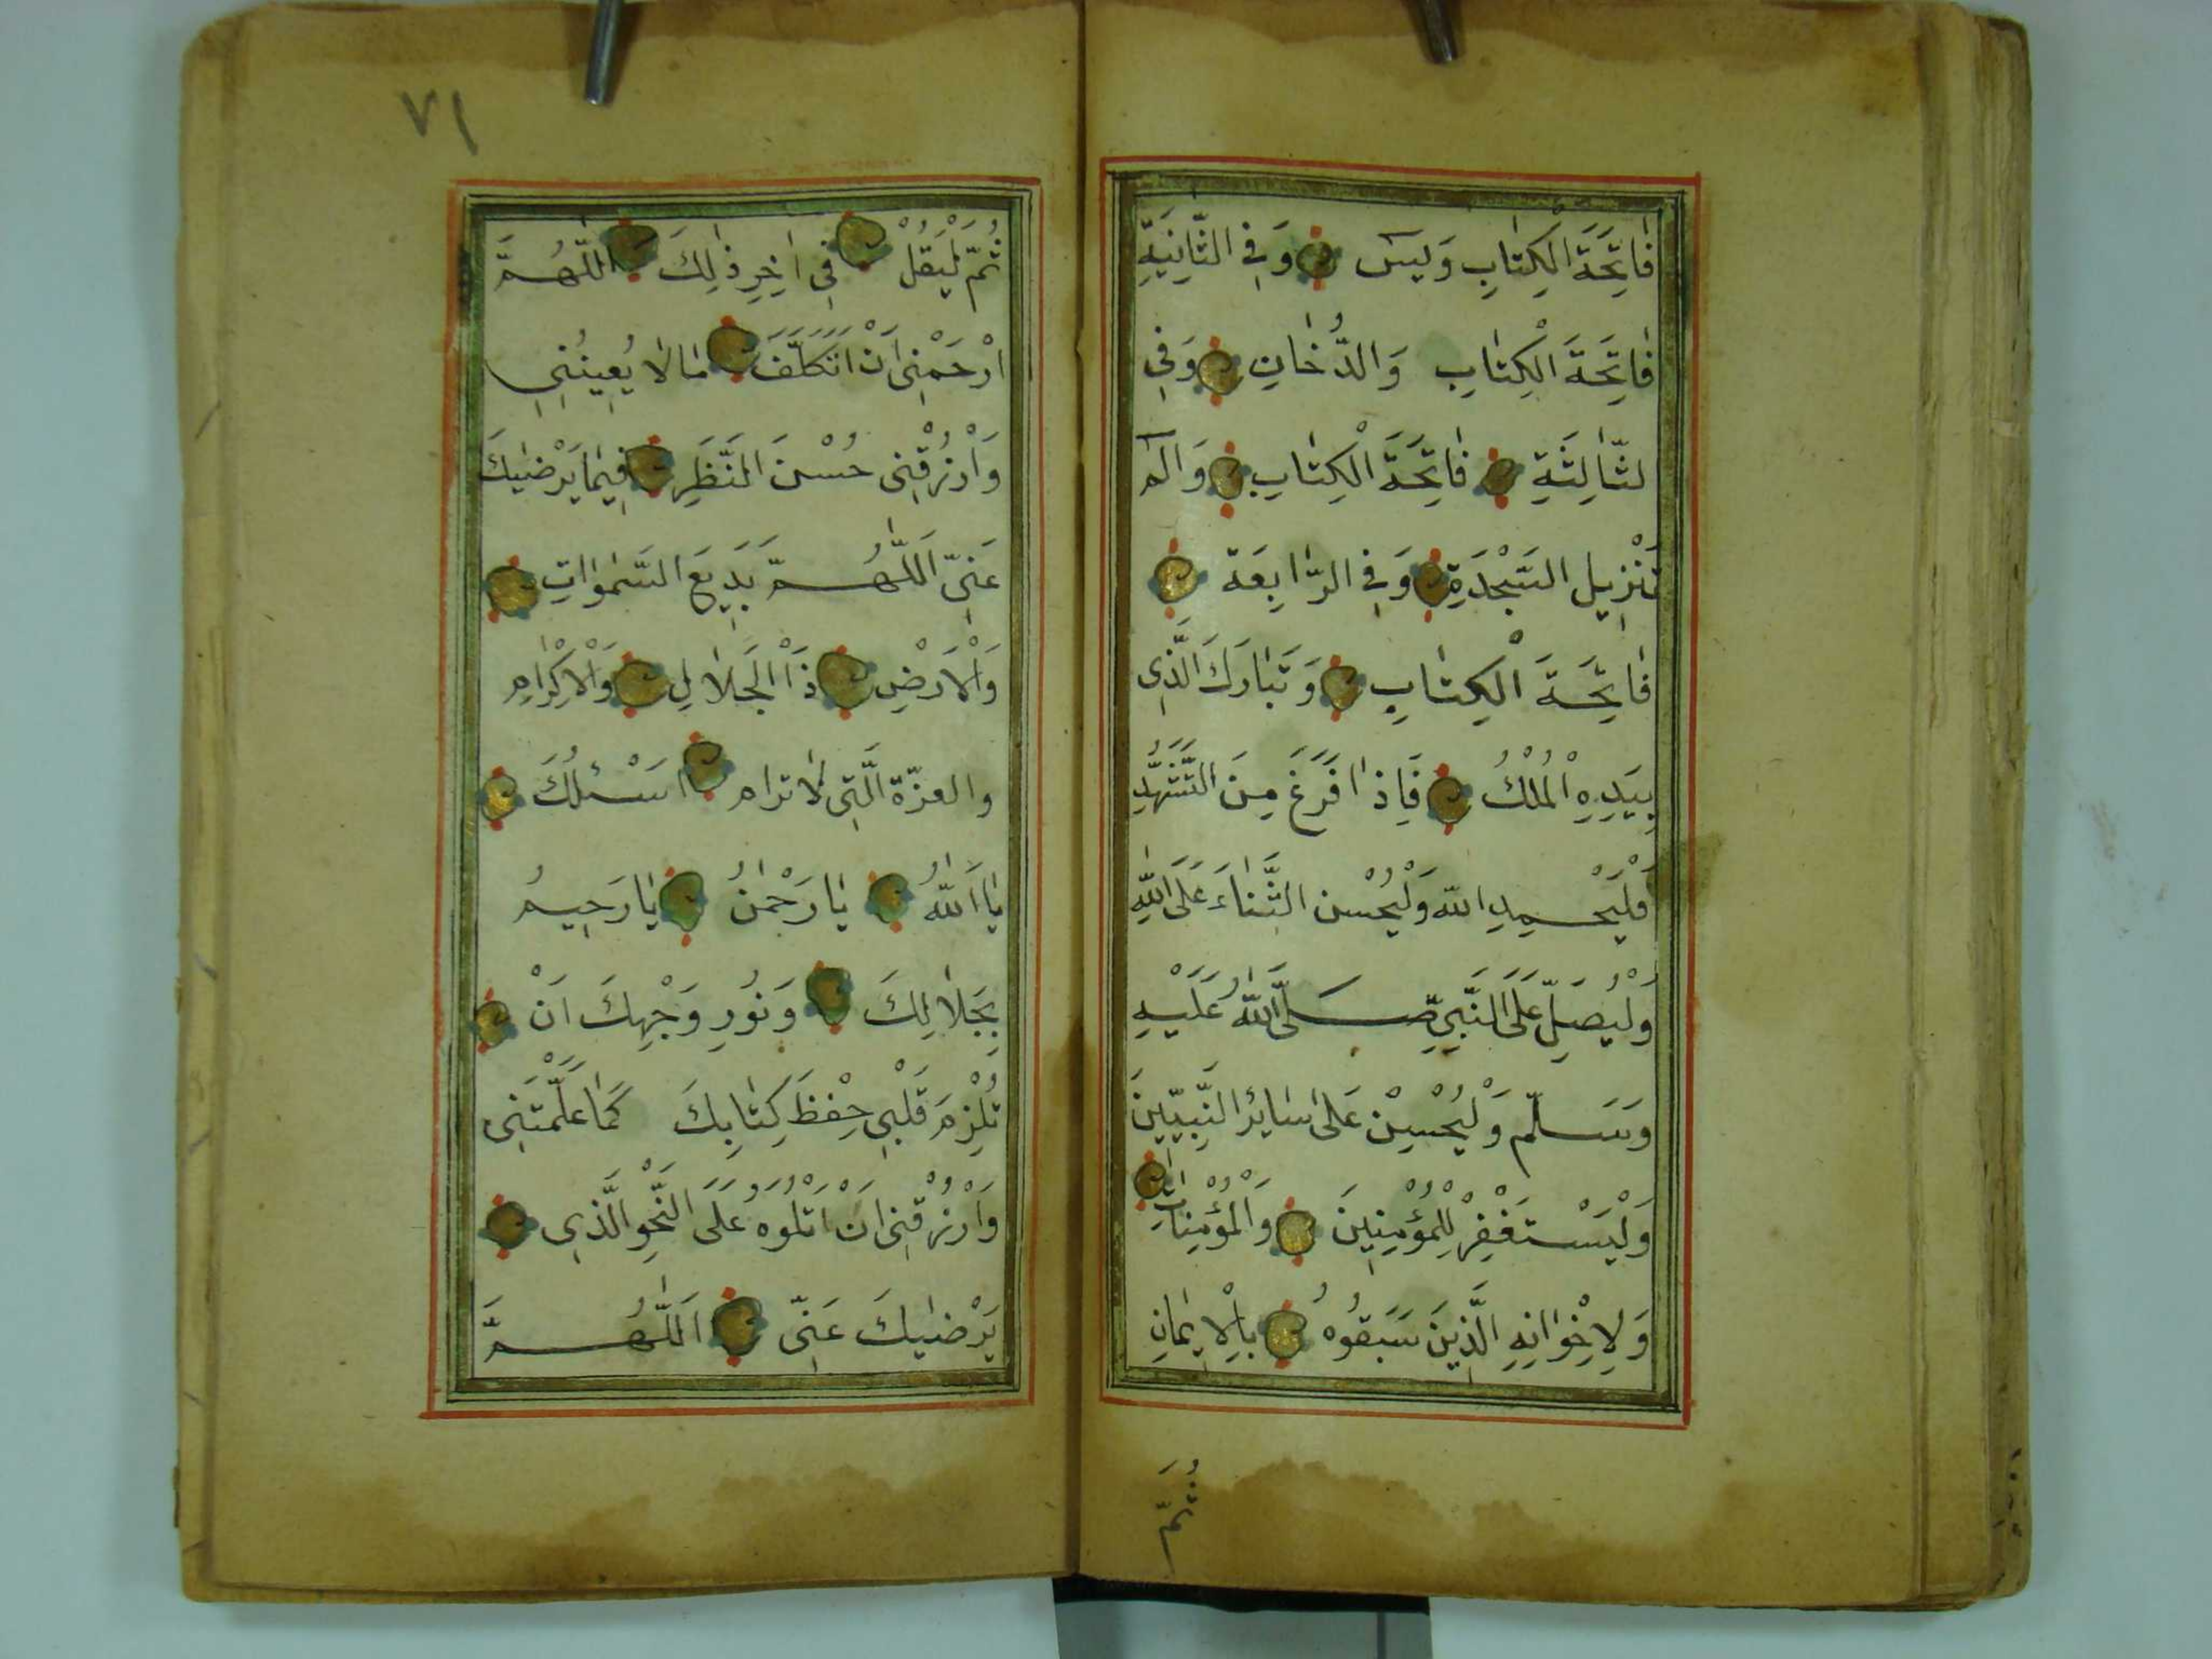 فَاتِحَةَ الْكِتَابِ وَيٰسٓ وَفِى الثَّانِيَةِ
فَاتِحَةَ الْكِتَابِ وَالدُّخَانِ وَفِى
لثَّالِثَةِ فَاتِحَةَ الْكِتَابِ وَالٓمٓ
تَنْزِيل السَّجْدَةِ وَفِى الرَّابِعَة
فَاتِحَةَ الْكِتَابِ وَتَبَارَكَ الَّذِى
بِيَدِهِ الْمُلْكُ فَاِذَا فَرَغَ مِنَ التَّشَهُّدِ
فَلْيَحْمِدِ اللّٰه وَلْيُحْسِن الثَّنَاءَ عَلَى اللّٰهِ
وَلْيُصَلِّ عَلَى النَّبِيِّ صَلَّى اللّٰهُ عَلَيْهِ
وَسَلَّم وَلْيُحْسِنْ عَلٰى سَايِرِ النَّبِيّينَ
وَلْيَسْتَغْفِرْ لِلْمُؤْمِنِينَ وَالْمُؤْمِنَاتِ
وَلِاِخْوَانِهِ الَّذِينَ سَبَقُوهُ بِالْاِيمَانِ
ثُمَّ
٧١
ثُمَّ لْيَقُلْ فِى اٰخِرِ ذٰلِكَ اَللّٰهُمَّ
ارْحَمْنِى اَنْ اَتَكَلَّفَ مَا لَا يُعِينُنِى
وَارْزُقْنِى حُسْنَ النَّظَرِ فِيمَا يَرْضٰيكَ
عَنِّى اَللّٰهُمَّ بَدِيعَ السَّمٰوَاتِ
وَالْاَرْضِ ذَا الْجَلَالِ وَالْاِكْرَامِ
والعزّة الَّتِى لَا ترام اَسْئَلُكَ
يَا اَللّٰهُ يَا رَحْمٰنُ يَا رَحِيمُ
بِجَلَالِكَ وَنُورِ وَجْهِكَ اَنْ
تُلْزِمَ قَلْبِى حِفْظَ كِتَابِكَ كَمَا عَلَّمْتَنِى
وَارْزُقْنِى اَنْ اَتْلُوَهُ عَلَى النَّحْوِ الَّذِى
يَرْضٰيكَ عَنِّى اَللّٰهُمَّ